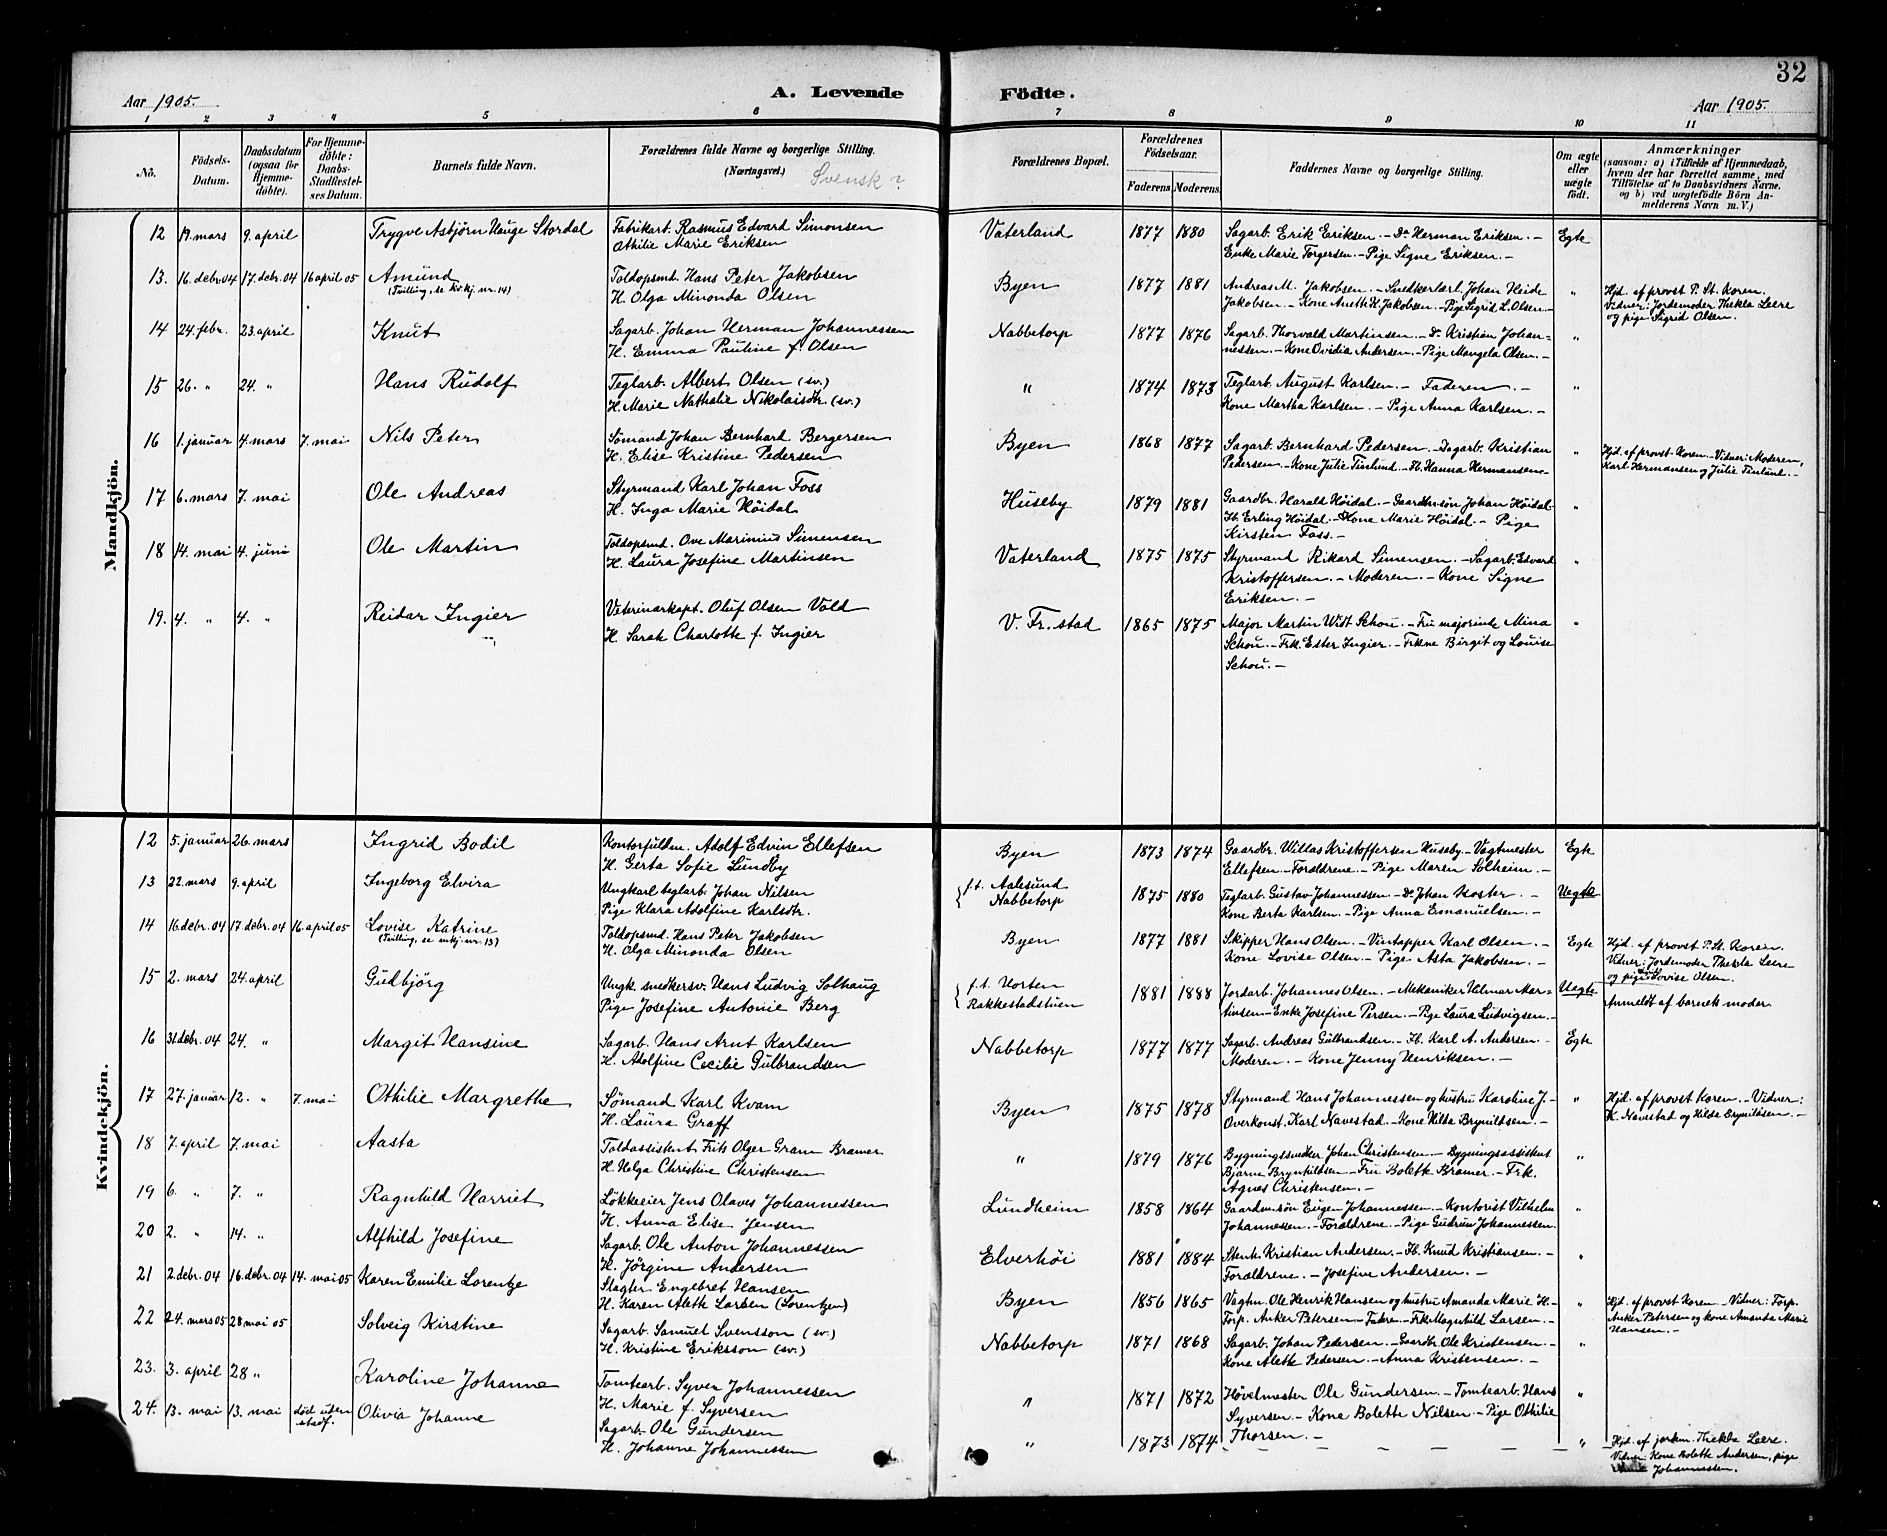 32
Aar 1905.
A. Levende
Födte.
Aar 1905.
1 2 3 4 5 6 7 8 9 10 11
No.
Födsels-
Datum.
Daabsdatum
(ogsaa for
Hjemme-
döbte).
For Hjemme-
döbte:
Daabs-
Stadfestel-
ses Datum.
Barnets fulde Navn.
Forældrenes fulde Navne og borgerlige Stilling.
(Næringsvei.)
Svensk?
Forældrenes Bopæl.
Forældrenes
Födselsaar.
Faderens. Moderens.
Faddernes Navne og borgerlige Stilling.
Om ægte
eller
uægte
födt.
Anmærkninger
(saasom: a) i Tilfælde af Hjemmedaab,
hvem der har forrettet samme, med
Tilföielse af to Daabsvidners Navne,
og b) ved uægtefödte Börn An-
melderens Navn m. V.)
Mandkjön.
12 19. mars 9. april Trygve Asbjörn Hauge Stordal Fabrikarb. Rasmus Edvard Simonsen Vaterland 1877 1880 Sagarb. Erik Eriksen. – Do Herman Eriksen. – Egte
Othilie Marie Eriksen Enke Marie Torgersen. – Pige Signe Eriksen. –
13. 16. debr. 04 17. debr. 04 16 april 05 Amund Toldopsmd. Hans Peter Jakobsen Byen 1877 1881 Andreas M. Jakobsen – Snedkerlærl. Johan Heide " Hjd. af provst P. St. Koren.
(Tvilling, se kvkj. nr. 14) H. Olga Minonda Olsen Jakobsen – Kone Aneth K. Jakobsen – Pige Sigrid L. Olsen. – Vidner: Jordemoder Thekla Leere
og pige Sigrid Olsen.
14 24. febr. 23. april Knut Sagarb. Johan Herman Johannessen Nabbetorp 1877 1876 Sagarb. Thorvald Martinsen. – Do. Kristian Johan- "
H. Emma Pauline f. Olsen nessen. – Kone Ovidia Andersen. – Pige Mangela Olsen. –
15 26. " 24. " Hans Rudolf Teglarb. Albert Olsen (sv.) " 1874 1873 Teglarb. August Karlsen. – Faderen. – "
H. Marie Nathalie Nikolaisdtr. (sv.) Kone Martha Karlsen. – Pige Anna Karlsen. –
16 1. januar 4. mars 7. mai Nils Peter Sömand Johan Bernhard Bergersen Byen 1868 1877 Sagarb. Bernhard Pedersen – Sagarb. Kristian " Hjd. af provst Koren – Vidner: Moderen,
H. Elise Kristine Pedersen Pedersen. – Kone Julie Tinlund. – Fr. Hanna Hermansen – Karl Hermansen og Julie Tinlund. –
17 6. mars 7. mai Ole Andreas Styrmand Karl Johan Foss Huseby 1879 1881 Gaardbr. Harald Höidal. – Gaardmsön Johan Höidal "
H. Inga Marie Höidal Fr. Erling Höidal – Kone Marie Höidal – Pige
Kirsten Foss. –
18 14. mai 4. juni Ole Martin Toldopsmd. Ove Marinius Simensen Vaterland 1875 1875 Styrmand Rikard Simensen. – Sagarb. Edvard "
H. Laura Josefine Martinsen Kristoffersen. – Moderen. – Kone Signe
Eriksen. –
19. 4. " 4. " Reidar Ingier Veterinærkapt. Oluf Olsen Vold V. Fr. stad 1865 1875 Major Martin Widt Schou. – Fru majorinde Mina "
H. Sarah Charlotte f. Ingier Schou. – Frk. Ester Ingier. – Frkne Birgit og Louise
Schou. –
Kvindekjön.
12 5. januar 26. mars Ingrid Bodil Kontorfuldm. Adolf Edvin Ellefsen Byen 1873 1874 Gaardbr. Willas Kristoffersen Huseby. – Vagtmester Egte
H. Gerta Sofie Lundby Ellefsen. – Foræld­rene. – Pige Maren Solheim. –
13 22. mars 9. april Ingeborg Elvira Ungkarl teglarb. Johan Nilsen f.t. Aalesund 1875 1880 Teglarb. Gustav Johannessen – Do. Johan Koster. – Uegte
Pige Klara Adolfine Karlsdtr. Nabbetorp Kone Berta Karlsen. – Pige Anna Emanuelsen. –
14 16. debr. 04 17. debr. 04 16. april 05 Lovise Katrine Toldopsmd. Hans Peter Jakobsen Byen 1877 1881 Skipper Hans Olsen. – Vintapper Karl Olsen. – Egte Hjd. af provst P. St. Koren.
(Tvilling, se mkj. nr. 13) H. Olga Minonda Olsen Kone Lovise Olsen – Pige Asta Jakobsen. – Vidner: Jordemoder Thekla Leere
og pige Lovise Olsen.
15 2. mars 24. april Gudbjörg Ungk. snedkersv. Hans Ludvig Solhaug f.t. Horten 1881 1888 Jordarb. Johannes Olsen. – Mekaniker Hilmar Mar- Uegte Anmeldt af barnets moder
Pige Josefine Antonie Berg Rakkestadstuen tinsen – Enke Josefine Persen. – Pige Laura Ludvigsen. –
16 31 debr. 04 24. " Margit Hansine Sagarb. Hans Arnt Karlsen Nabbetorp 1877 1877 Sagarb. Andreas Gulbrandsen – Fr. Karl A. Andersen. – Egte
H. Adolfine Cecilie Gulbrandsen Moderen. – Kone Jenny Henriksen. –
17 27. januar 12. " 7. mai Othilie Margrethe Sömand Karl Kvam Byen 1875 1878 Styrmand Hans Johannessen og hustru Karoline J. – " Hjd. af provst Koren. – Vidner:
H. Laura Graff Overkonst. Karl Navestad. – Kone Hilda Brynildsen. – K. Navestad og Hilda Brynildsen. –
18 7. april 7. mai Aasta Toldassistent Frits Olger Gram Bramer " 1879 1876 Bygningssnedker Johan Christensen – Bygningsassistent "
H. Helga Christine Christensen Bjarne Brynhildsen – Fru Bolette Bramer – Frk.
Agnes Christensen. –
19 6. " 7. " Ragnhild Harriet Lökkeeier Jens Olaves Johannessen Lundheim 1858 1864 Gaardmsön Eugen Johannessen. – Kontorist Vilhelm "
H. Anna Elise Jensen Johannessen. – Forældrene. – Pige Gudrun Johannessen.
20 2. " 14. " Alfhild Josefine Sagarb. Ole Anton Johannessen Elverhöi 1881 1884 Stenh. Kristian Andersen. – Fr. Knud Kristiansen. – "
H. Jörgine Andersen Forældrene. – Josefine Andersen. –
21 2. debr. 04 16. debr. 04 14. mai 05 Karen Emilie Lorentze Slagter Engebret Hansen Byen 1856 1865 Vagtm. Ole Henrik Hansen og hustru Amanda Marie H. – " Hjd. af provst Koren – Vidner: Torp.
H. Karen Alette Larsen (Lorentzen) Torp. Anker Petersen – Fadren. – Frk. Magnhild Larsen. – Anker Petersen og kone Amanda Marie
Hansen. –
22 24. mars 05 28 mai 05 Solveig Kirstine Sagarb. Samuel Svensson (sv.) Nabbetorp 1871 1868 Sagarb. Johan Pedersen – Gaardbr. Ole Kristensen. – "
H. Kristine Eriksson (sv.) Kone Alette Pedersen. – Anna Kristensen. –
23. 3. april 28 " Karoline Johanne Tomtearb. Syver Johannessen " 1871 1872 Hövelmester Ole Gundersen. – Tomtearb. Hans "
H. Marie f. Syversen Syversen. – Kone Bolette Nilsen. – Pige Othilie
Thorsen. –
24. 13. mai 13. mai död uden stadf. Olivia Johanne Sagarb. Ole Gundersen " 1873 1874 – – – – – " Hjd. af jordm. Thekla Leere.
H. Johanne Johannessen Vidner: Kone Bolette Andersen, pige
Johannessen.